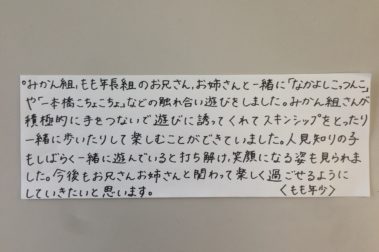 。みかん組、もも年長組のお兄さん、お姉さんと一緒に「なかよしこつんこ」
や「一本橋こちょこちょ」などの触れ合い遊びをしました。みかん組さんが
積極的に手をつないで遊びに誘ってくれてスキンシップをとったり
一緒に歩いたりして楽しむことができていました。人見知りの子
もしばらく一緒に遊んでいると打ち解け、笑顔になる姿も見られま
した。今後もお兄さんお姉さんと関わって楽しく過ごせるように
していきたいと思います。 〈もも年少〉